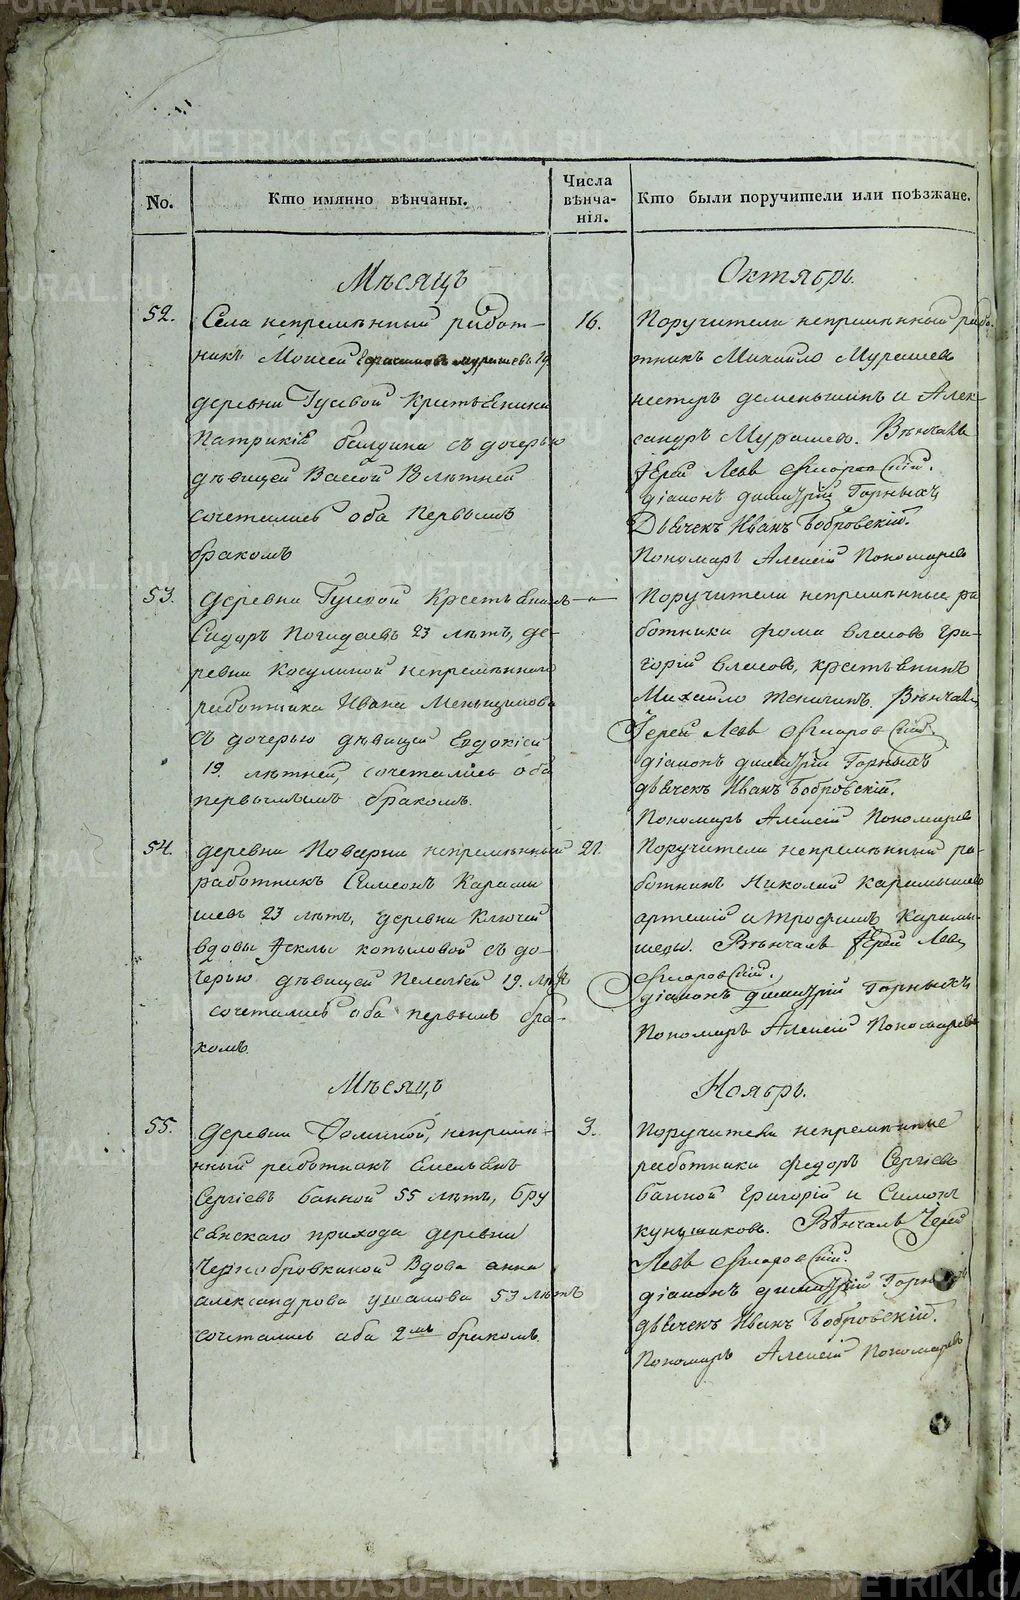 No.
Кто имянно вѣнчаны.
Числа
вѣнча-
нія.
Кто были поручители или поѣзжане.
Мѣсяцъ
Октябрь.
52.
Села непремѣнный работ-
никъ Моисей Мурашевъ 19.
деревни Гусевой Крестьянина
Патрикія с дочерью
дѣвицей Вассой 18 лѣтней
сочетались оба Первымъ
бракомъ
16.
Поручители непремѣнный рабо-
тникъ Михайло Мурашевъ
Нестеръ деменьшинъ и Алек-
сандръ Мурашевъ. Вѣнчалъ
Іерей Левъ
діаконъ димитрій Горныхъ
Дьячекъ Иванъ Бобровскій.
Пономарь Алексій Пономаревъ
53.
деревни Гусевой Крестьянинъ
Сидоръ Погадаевъ 23 лѣтъ, де-
ревни Косулиной непремѣннаго
работника Ивана Меньщикова
съ дочерью дѣвицей Евдокіей
19. лѣтней, сочетались оба
первымъ бракомъ.
—
Поручители непремѣнные ра
ботники фома власовъ гри-
горій власовъ, крестьянинъ
Михайло Вѣнчалъ
Іерей Левъ
діаконъ димитрій Горныхъ
дьячекъ Иванъ Бобровскій.
Пономарь Алексій Пономаревъ
54.
деревни непремѣнный
работникъ Симеонъ Карамы
шевъ 23 лѣтъ, деревни Ключей
вдовы Феклы копыловой съ до-
черью дѣвицей Пелагѣей 19. лѣт
сочетались оба первымъ бра-
комъ.
21.
Поручители непремѣнный ра-
ботникъ Николай Карамышевъ
артемій и трофимъ Карамы-
шевы. Вѣнчалъ Іерей Левъ
діаконъ димитрій Горныхъ
Пономарь Алексій Пономаревъ
Мѣсяцъ
Ноябрь.
55.
деревни непремѣ-
нный работникъ Емельянъ
Сергіевъ банной 55 лѣтъ, бру
сянскаго прихода деревни
Чернобровкиной Вдова анна
александрова ушакова 53 лѣтъ
сочетались оба 2мъ бракомъ.
3.
Поручители непремѣнные
работники федоръ Сергіевъ
банной григорій и Симонъ
куньщиковъ. Вѣнчалъ Іерей
Левъ
діаконъ димитрій Горныхъ
дьячекъ Иванъ Бобровскій.
Пономарь Алексій Пономаревъ
METRIKI.GASO-URAL.RU